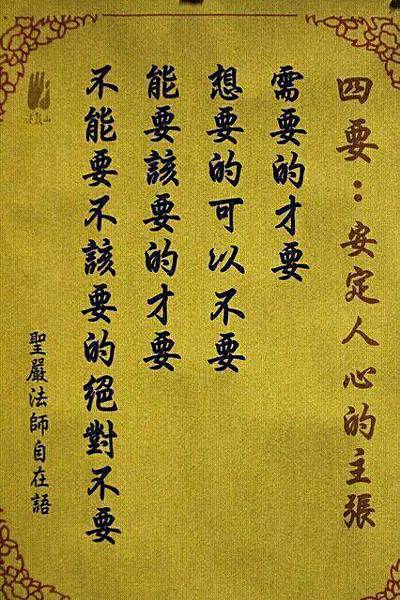 四要：安定人心的主張
需要的才要
想要的可以不要
能要該要的才要
不能要不該要的絕對不要
聖嚴法師自在語
法鼓山